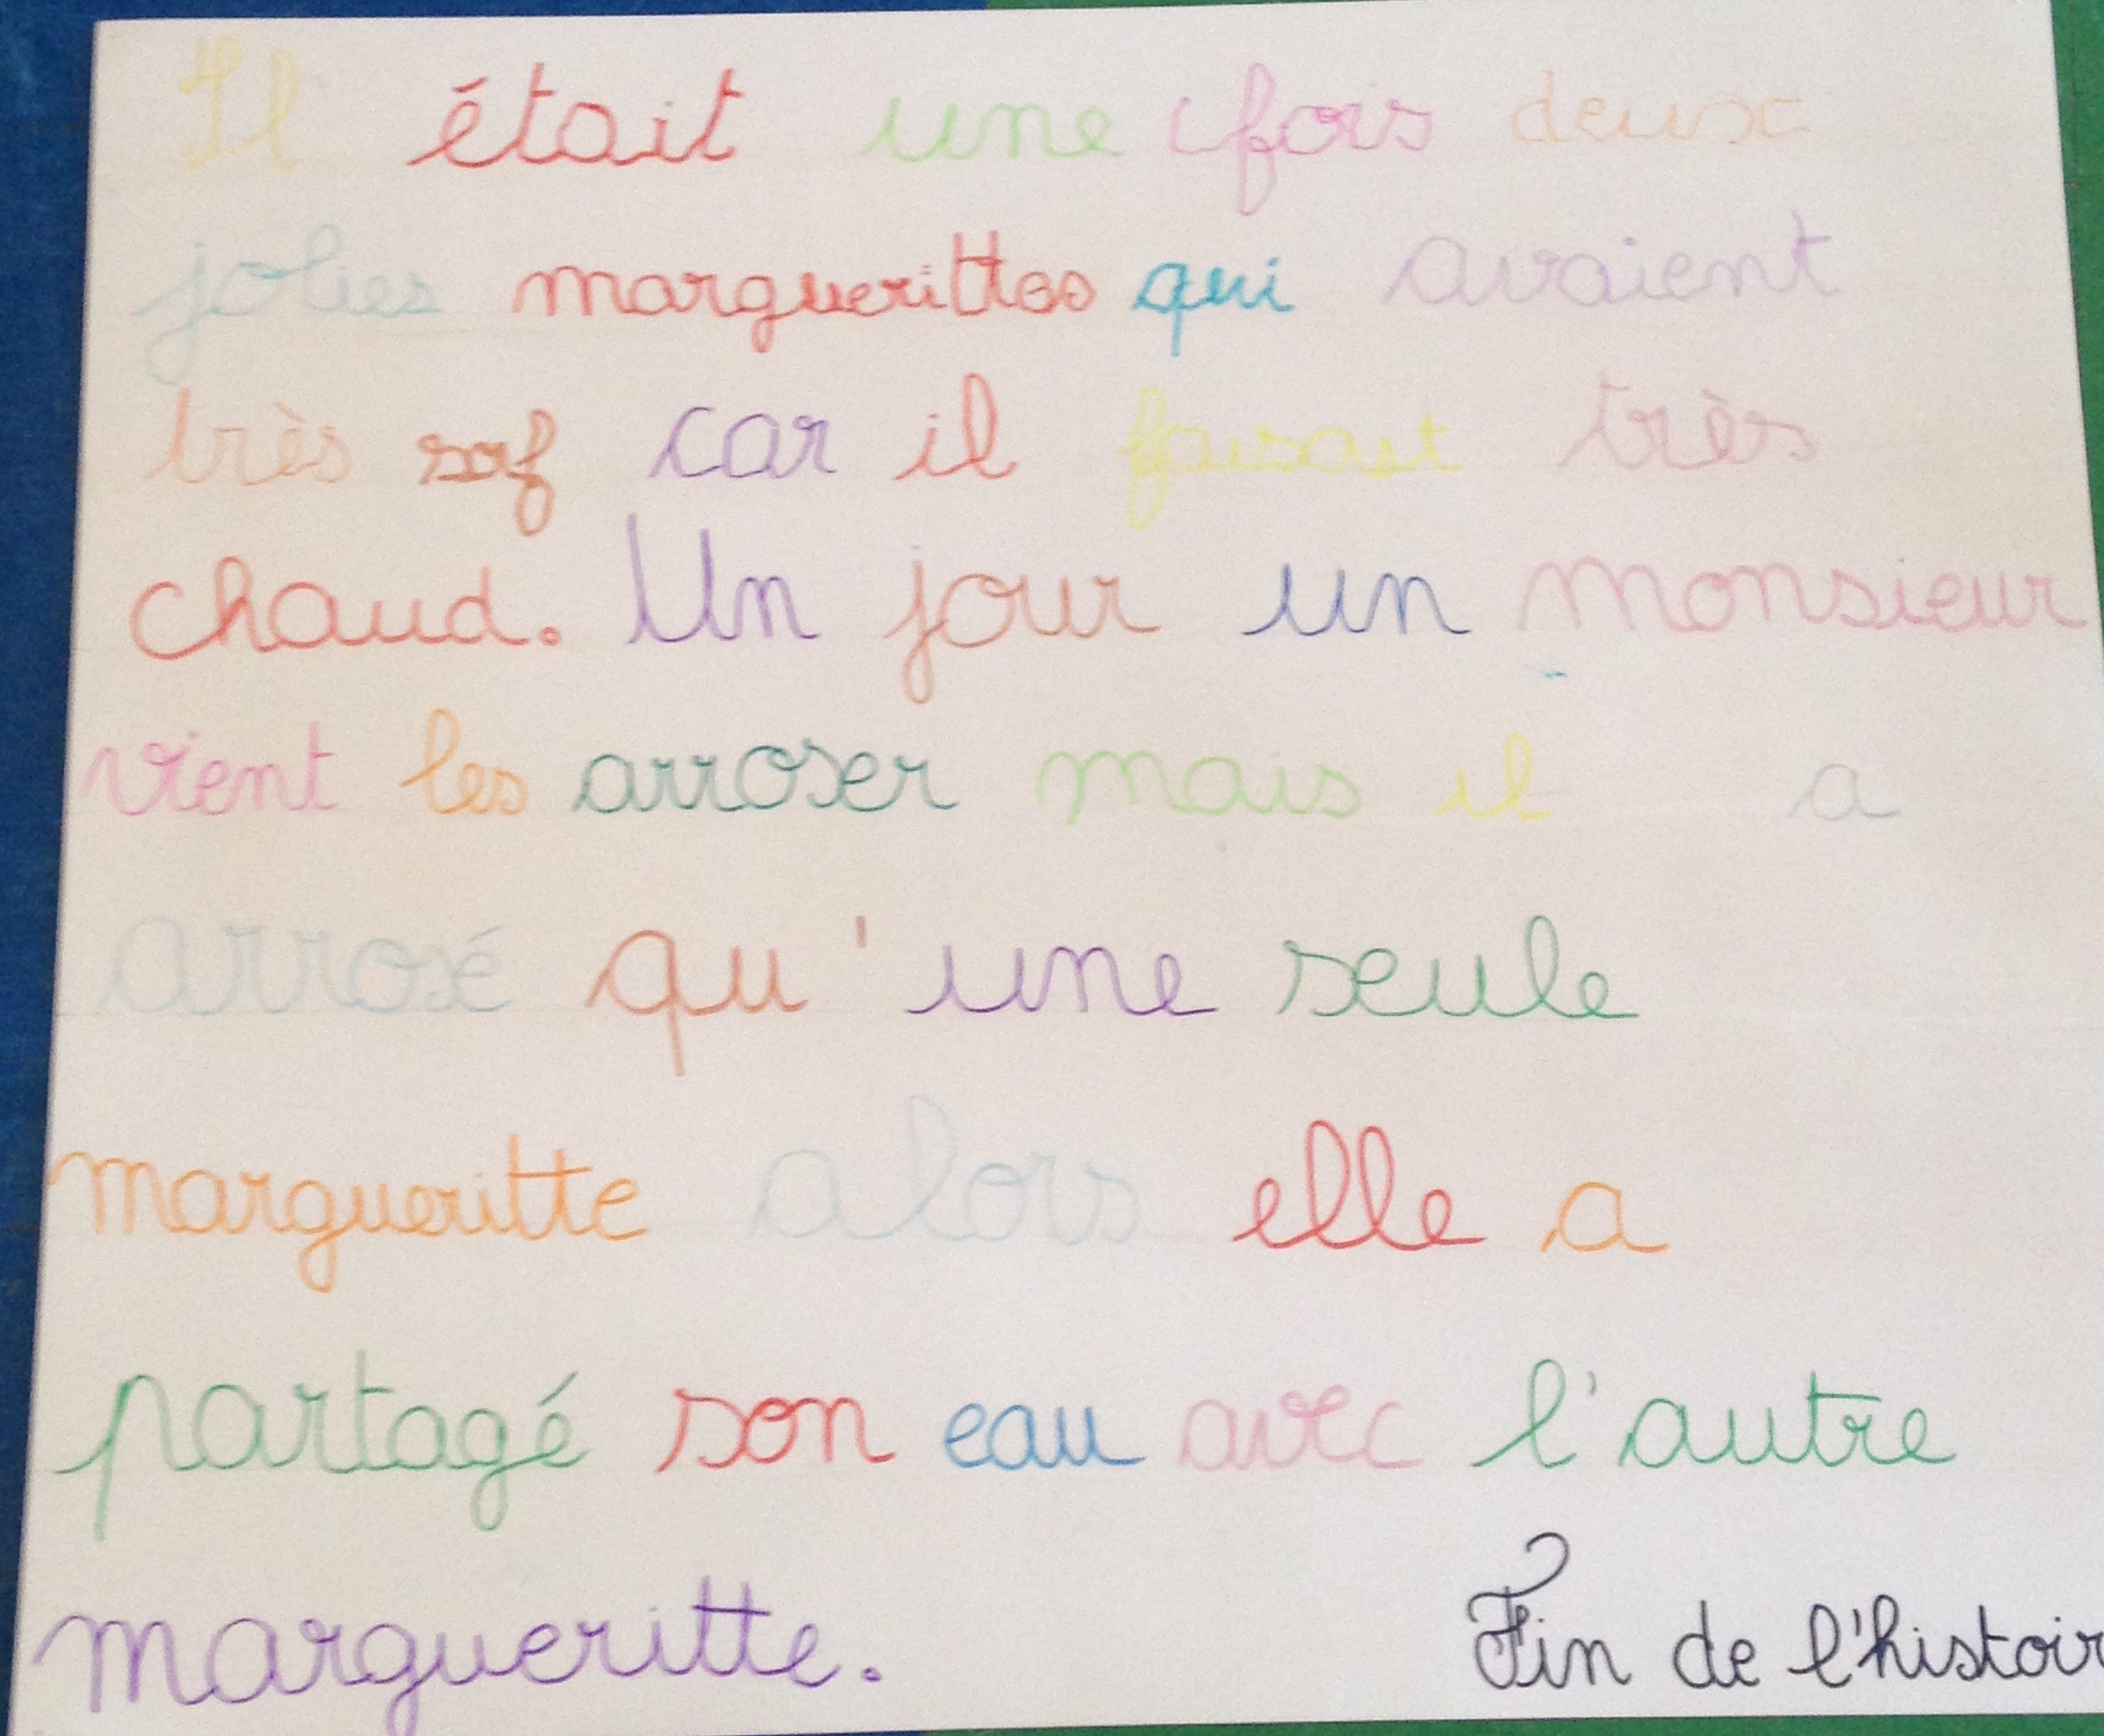 Il était une fois deux
jolies marguerittes qui avaient
très soif car il faisait très
chaud. Un jour un monsieur
vient les arroser mais il a
arrosé qu'une seule
margueritte alors elle a
partagé son eau avec l'autre
margueritte.
Fin de l'histoir